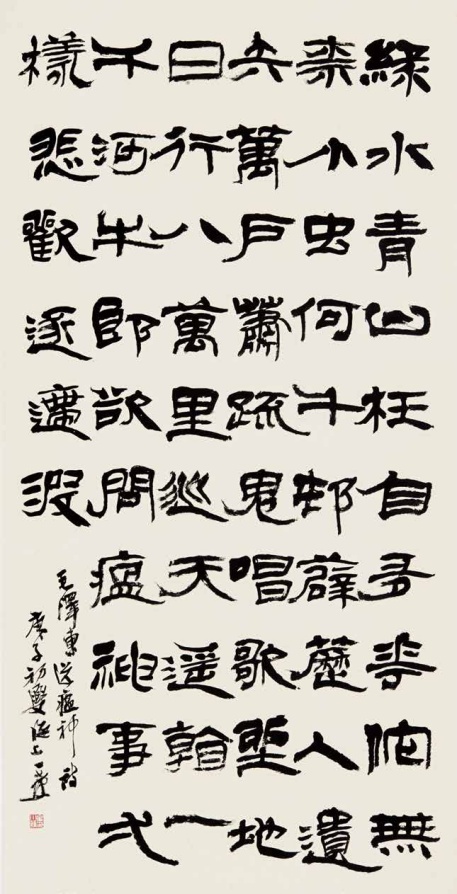 綠水青山枉自多華佗無
柰小虫何千邨薜藶人遺
矢萬戶蕭疏鬼唱歌坐地
日行八萬里巡天遥看一
千河牛郎欲問瘟神事弌
樣悲歡逐逝波
毛澤東送瘟神詩
庚子初夏海上